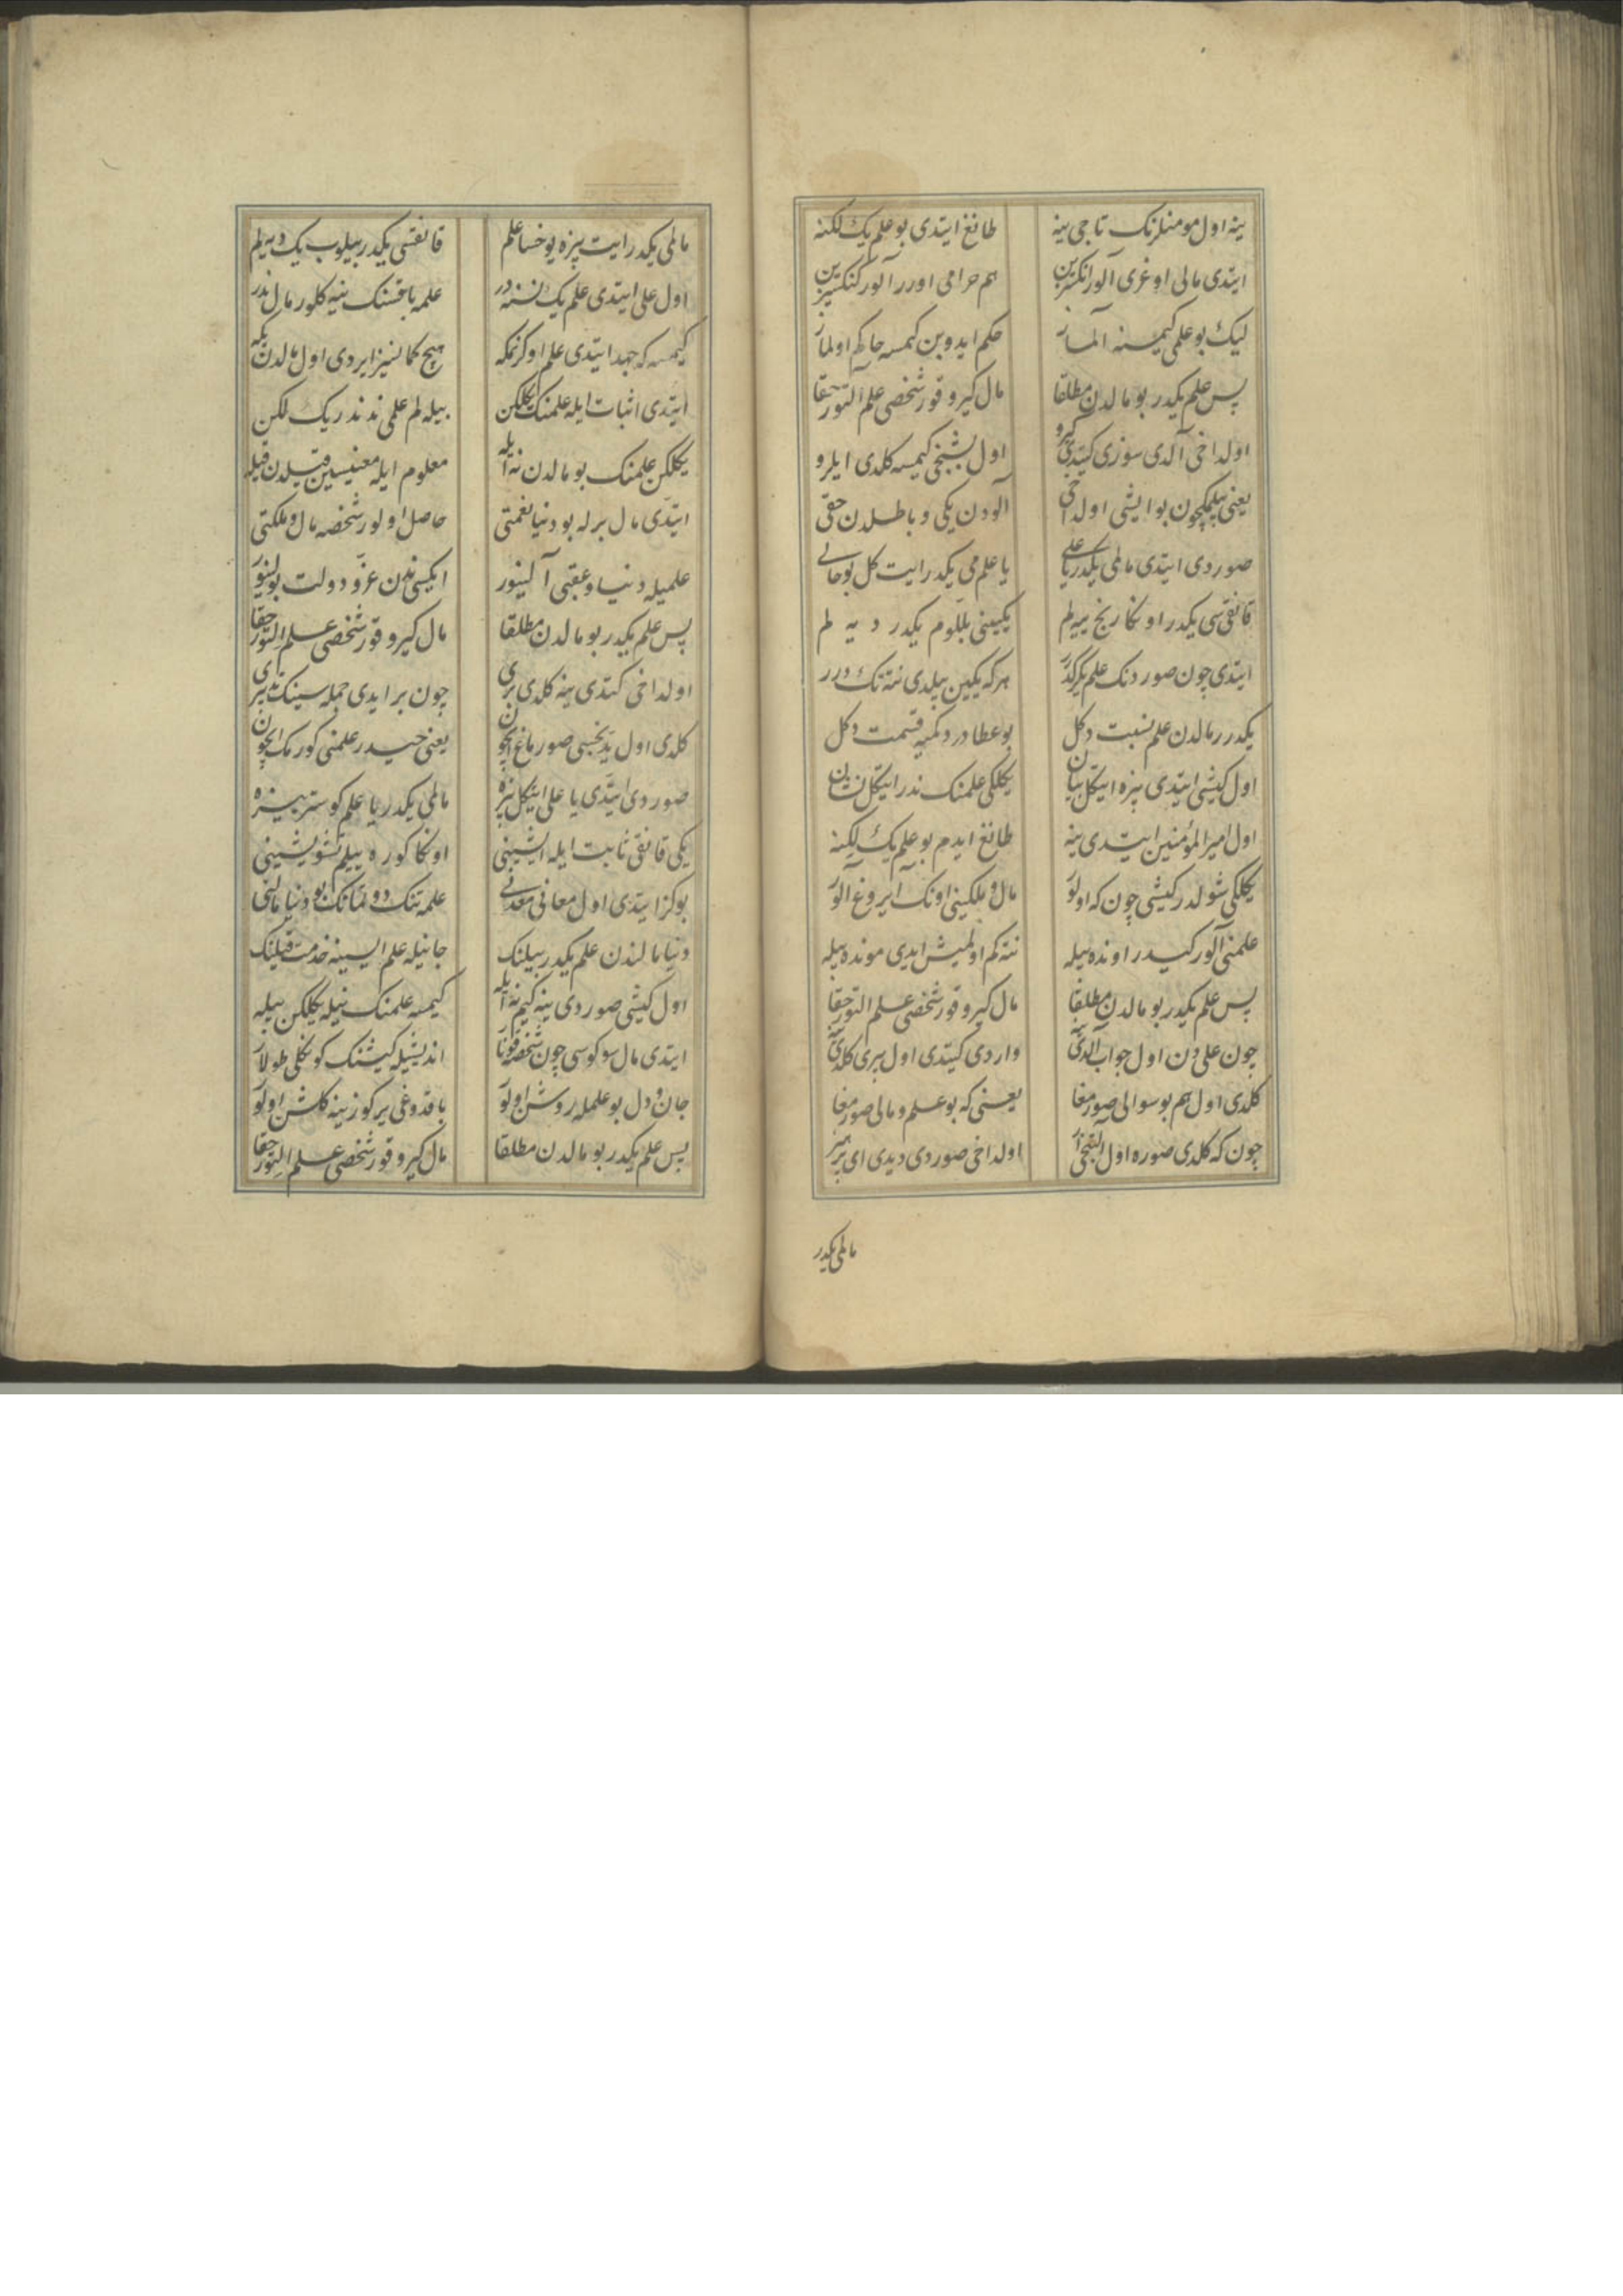 ینه اول مومنلرنک تاجی ینه طانغ ایتدی بو علم یک لکنه
ایتدی مالی اوغری آلور هم حرامی اورر آلور
لیک بو علمی کیمسنه آلماز حکم ایدوبن کمسه حاکم اولماز
پس علم یکدر بو مالدن مطلقا مال کیرو قور شخصی علم التور حقا
اولداخی آلدی سوزی کیتدی کیرو اول بشنجی کیمسه کلدی ایلرو
یعنی بیلمکچون بو ایشی اولداخی آلودن یکی و باطلدن حقی
صوردی ایتدی مالمی یکدر یا علی یا علممی یکدر ایت کل بو حالی
قانقسی یکدر اوکا رنج ییه لم یکینی بللوم یکدر دیه لم
ایتدی چون صوردنک علم یکرکدر هرکه یکین بیلدی نته تک درر
یکدرر مالدن علم نسبت دکل بو عطادر دکمیه قسمت دکل
اول کیشی ایتدی بزه ایتکل بیان یکلکی علمنک ندر ایتکل نشان
اول امیر المؤمنین ایتدی ینه طانغ ایدم بو علم یک لکنه
یکلکی شولدر کیشی چون که اولور مال و ملکینی اونک ایروغ آلور
علمنی آلور کیدر اونده بیله نته کم اولمیش ایدی مونده بیله
پس علم یکدر بو مالدن مطلقا مال کیرو قور شخصی علم التور حقا
چون علی دن اول جواب آلدی ینه واردی کیتدی اول بیری کلدی ینه
کلدی اول هم بو سوالی صورمغا یعنی که بو علم و مالی صورمغا
چون که کلدی صوره اول التنجی ار اولداخی صوردی دیدی ای پر هنر
مالمی یکدر
مالمی یکدر ایت بزه یوخسا علم قانقسی یکدر بیلوب یک دیه لم
اول علی ایتدی علم یک نسنه در علمه باقسنک ینه کلور مال ندر
کیمسه که جهد ایتدی علم اوکرنمکه هیچ کمانسیز ایردی اول مالدن یکه
ایتدی اثبات ایله علمنک یکلکن بیله لم علمی ندندر یک لکن
یکلکن علمنک بو مالدن نه ایله معلوم ایله معنیسین قیلدن قیله
ایتدی مال برله بو دنیا نعمتی حاصل اولور شخصه مال و ملکتی
علمیله دنیا و عقبی آلینور ایکسیندن عز و دولت بولینور
پس علم یکدر بو مالدن مطلقا مال کیرو قور شخصی علم التور حقا
اولداخی کتدی ینه کلدی بری چون بر ایدی جمله سینک
کلدی اول یدنجیسی صورماغ ایچون یعنی حیدر علمنی کورمک ایچون
صوردی ایتدی یا علی ایتکل بزه مالمی یکدر یا علم کوستر بیزه
یکی قانقی ثابت ایله ایشینی اوکا کوره بیلم تشویشینی
بو کز ایتدی اول معانی معدنی علمه تنک دوتمانک بو دنیا مالنی
دنیا مالندن علم یکدر بیلنک جانیله علم ایسینه خدمت قیلنک
اول کیشی صوردی ینه کیم نه ایله کیمسه علمنک نیله یکلکن بیله
ایتدی مال سوکوسی چون شخصه قونار اندیشیله کیشنک کونکلی طولار
جان و دل بو علمله روشن اولور باقدوغی یر کوزینه کلشن اولور
پس علم یکدر بو مالدن مطلقا مال کیرو قور شخصی علم التور حقا